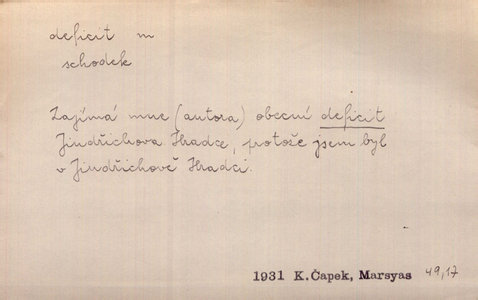 deficit m
schodek
Zajímá mne (autora) obecní deficit
Jindřichova Hradce, protože jsem byl
v Jindřichově Hradci.
1931 K.Čapek, Marsyas 49,17